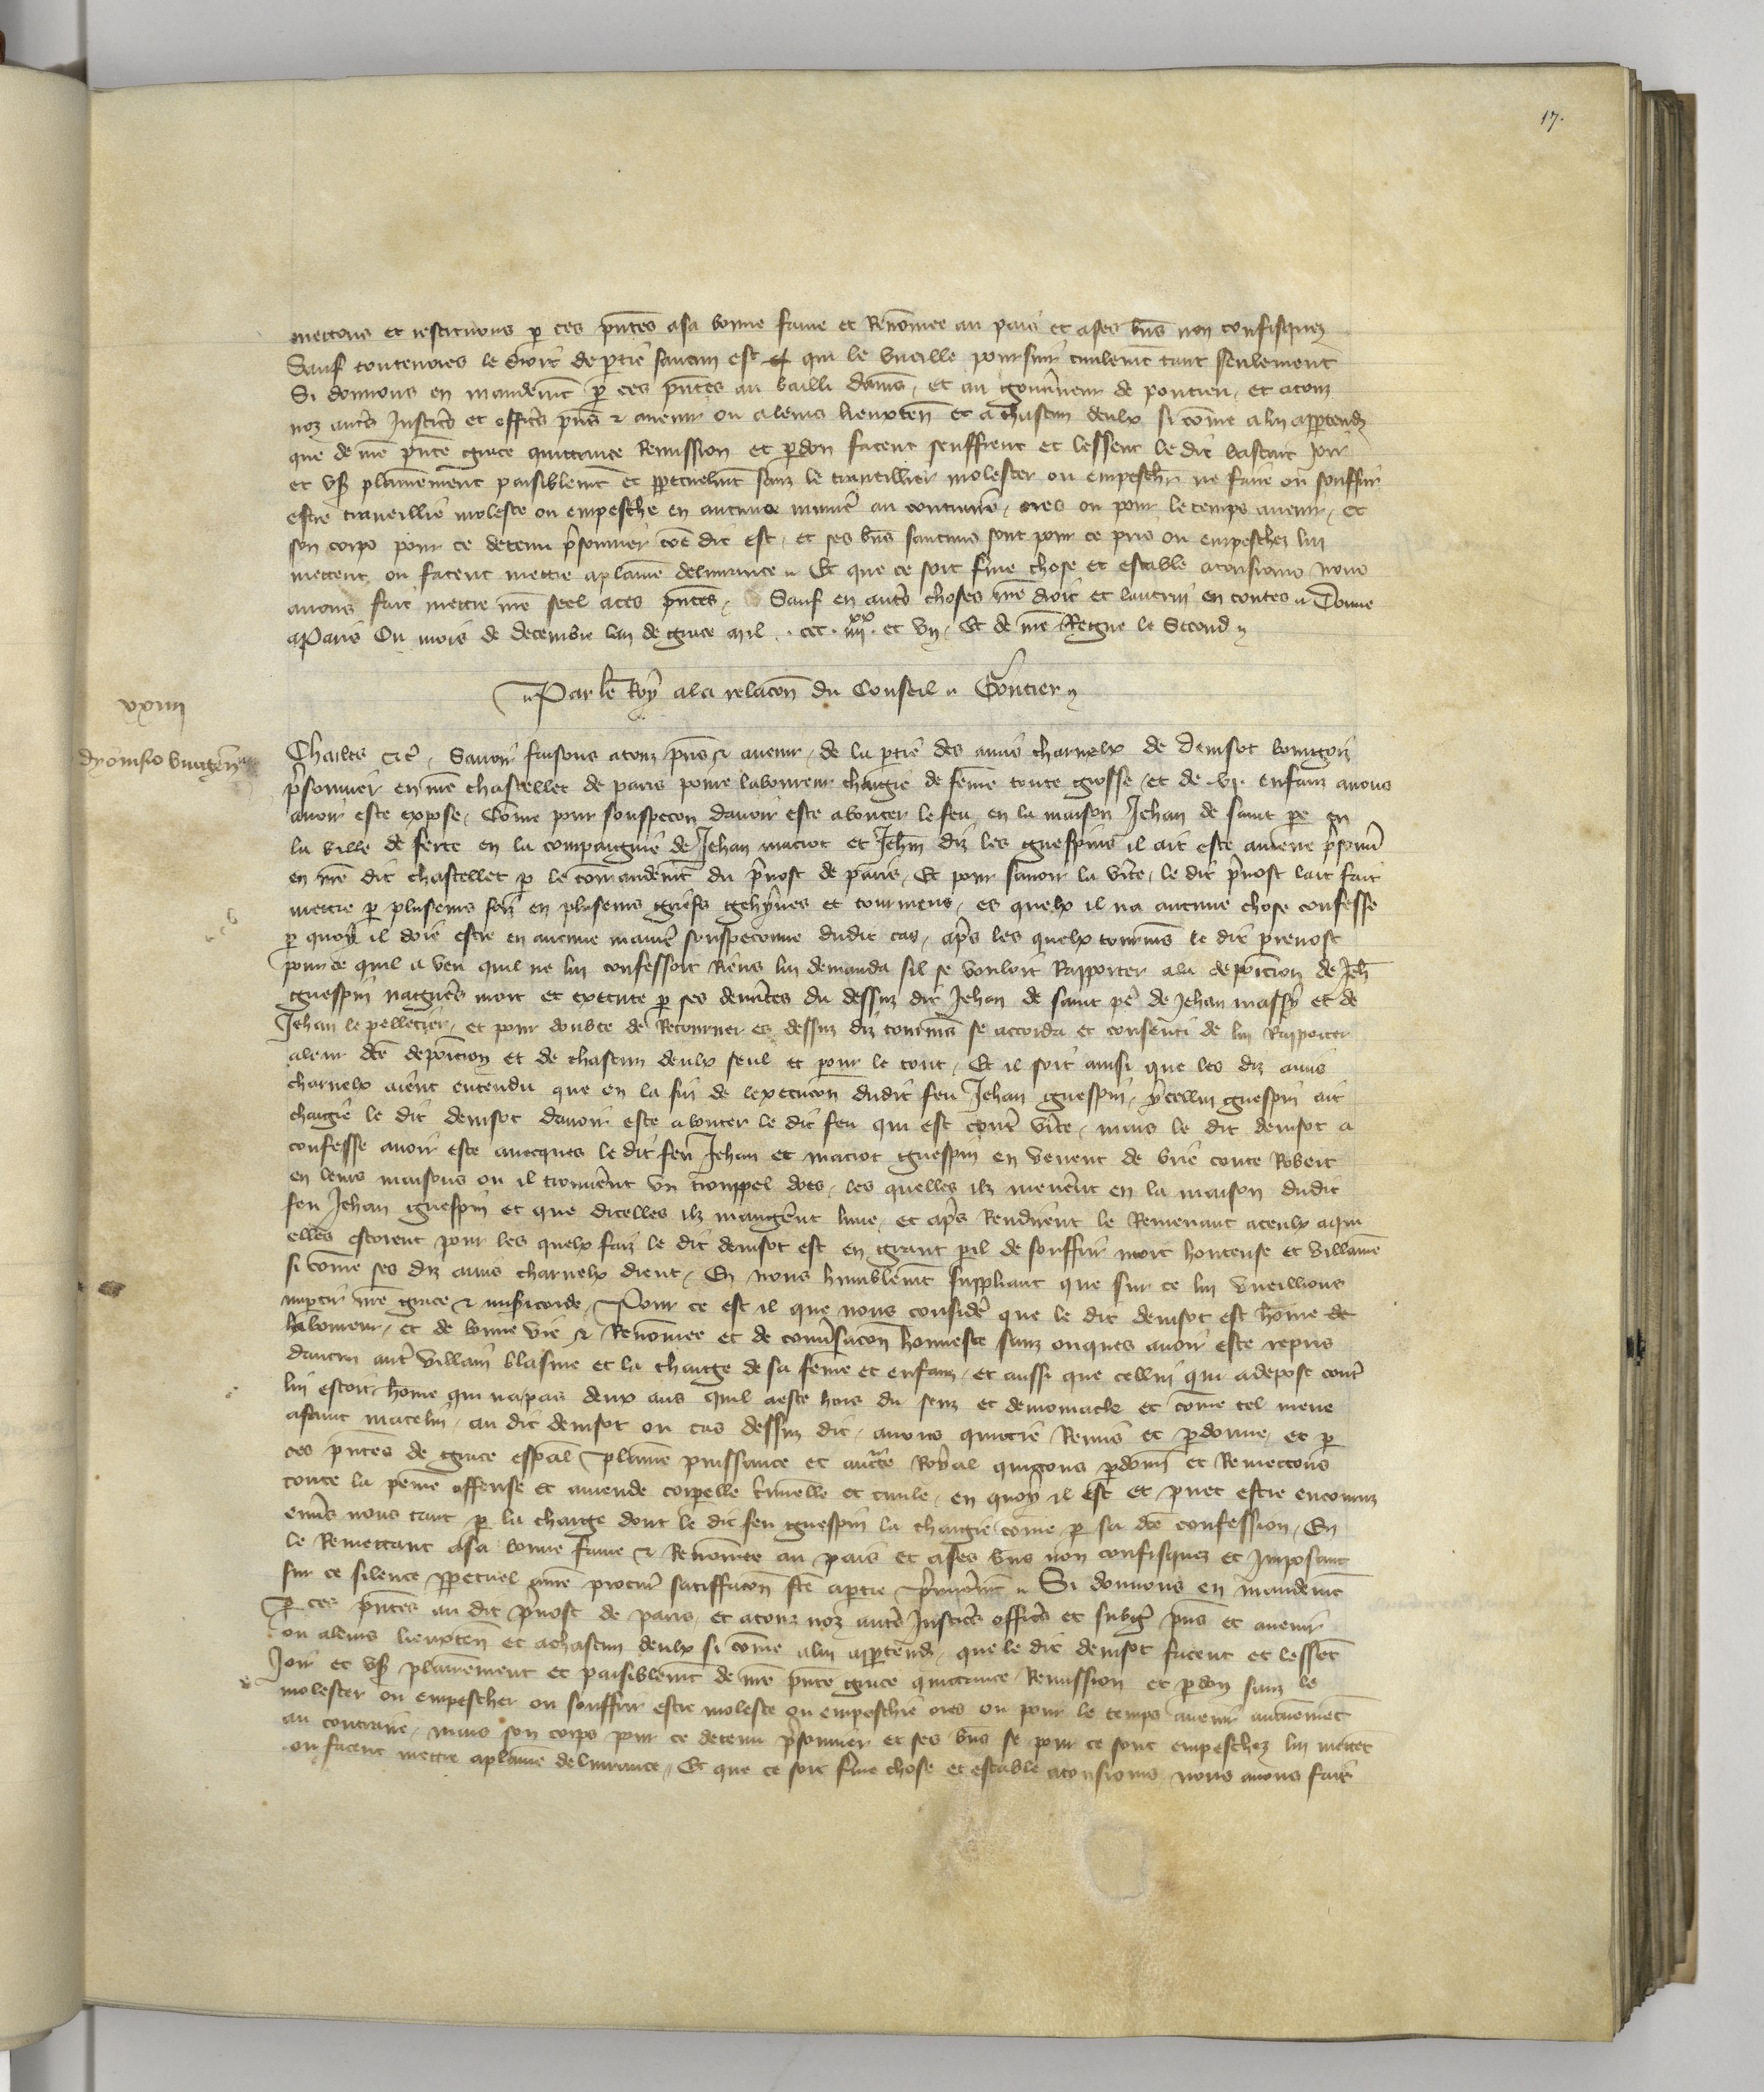 17.
mettons et restituons p ces pntes a sa bonne fame et Renomee au pais et a ses bns non confisquez
Sauf toutevoies le droit de ptie saucun est qui le vueille poursuir civilemt tant seulement
Si donnons en mandemt p ces pntes au bailli damis et au gouvneur de pontieu et a touz
noz autres Justic et offic pns et avenir ou a leurs lieuxten et a chascun deulx si come a lui apptendz
que de nre pnte grace quittance Remission et pdon facent seuffrent et lessent le dit bastart Joir
et us plainement paisiblemt et ppetuelmt sanz le traveillier molester ou empeschr ne faire ou souffrir
estre traveillie moleste ou empesche en aucune maniere au contraire ores ou pour le temps avenir et
son corps pour ce detenu prsonnier coe dit est et ses bns saucuns sont pour ce pris ou empeschez lui
mettent ou facent mettre a plaine delivrance Et que ce soit ferme chose et estable a tousiours nous
avons fait mettre nre seel a ces pntes Sauf en autres choses nre droit et lautrui en toutes Donne
a Paris Ou mois de decembre lan de grace mil ccc iiiixx et vn Et de nre Regne le Second
Par le Roy a la relacon du Conseil Gontier
xxiiii
dyonisio
Charles etc Savoir faisons a touz pns et avenir de la ptie des amis charnelx de denisot
prsonnier en nre chastellet de paris povre laboureur chargie de feme toute grosse et de vi enfanz a nous
avoir este expose Come pour souspecon davoir este a bouter le feu en la maison Jehan de saint pere en
la ville de ferte en la compaignie de Jehan maciot et Jehn diz les guespins il ait este amene prsonn
en nre dit chastellet p le comandemt du prvost de paris Et pour savoir la vite le dit prvost lait fait
mettre p plusieurs foiz en plusieurs griefs gehynes et tourmens es quelx il na aucune chose confesse
p quoy il doie estre en aucune maniere souspeconne dudit cas apres les quelx tourmens le dit prevost
pour ce quil a veu quil ne lui confessoit Riens lui demanda sil se vouloit Rapporter a la deposicion de Jehn
guespin nagueres mort et execute p ses demerites du dessuz dit Jehan de saint pere de Jehan massy et de
Jehan le pelletier et pour doubte de Retourner es dessuz diz tourmens se accorda et consenti de lui Rapporter
a leur dce deposicion et de chascun deulx seul et pour le tout Et il soit ainsi que les diz amis
charnelx aient entendu que en la fin de lexecucion dudit feu Jehan guespin ycellui guespin ait
chargie le dit denisot davoir este a bouter le dit feu qui est contre vite mais le dit denisot a
confesse avoir este avecques le dit feu Jehan et maciot guespin en venent de brie conte Robert
en leurs maisons ou il trouverent vn trouppel does les quelles ilz menerent en la maison dudit
feu Jehan guespin et que dicelles ilz mangerent lune et apres Rendirent le Remenant a ceulx a qui
elles estoient pour les quelx faiz le dit denisot est en grant pil de souffrir mort honteuse et villaine
si come ses diz amis charnelx dient En nous humblemt suppliant que sur ce lui vueillions
impartir nre grace et misicorde Pour ce est il que nous consider que le dit denisot est home de
laboureur et de bonne vie et Renomee et de conversacon honneste sanz onques avoir este repris
daucun autre villain blasme et la charge de sa feme et enfanz et aussi que cellui qui a depose contre
lui estoit home qui na pas deux ans quil a este hors du senz et demoniacle et come tel mene
a saint matelin au dit denisot ou cas dessuz dit avons quittie Remis et pdonne et p
ces pntes de grace espcal plaine puissance et aucte Royal quittons pdonn et Remettons
toute la peine offense et amende corpelle criminelle et civile en quoy il est et puet estre encouruz
envers nous tant p la charge dont le dit feu guespin la chargie come p sa dce confession En
le Remettant a sa bonne fame et Renomee au pais et a ses bns non confisquez et Imposant
sur ce silence ppetuel a nre procur satisfacon fte a ptie premieremt Si donnons en mandemt
p ces pntes au dit prvost de paris et a touz noz autres Justic offic et subgiez pns et avenir
ou a leurs lieuxten et a chascun deulx si come a lui apptend que le dit denisot facent et lessent
Joir et us plainement et paisiblemt de nre pnte grace quittance Remission et pdon sanz le
molester ou empescher ou souffrir estre moleste ou empeschie ores ou pour le temps avenir aucunemt
au contraire mais son corps pour ce detenu prsonnier et ses bns se pour ce sont empeschez lui mettet
ou facent mettre a plaine delivrance Et que ce soit ferme chose et estable a tousiours nous avons fait